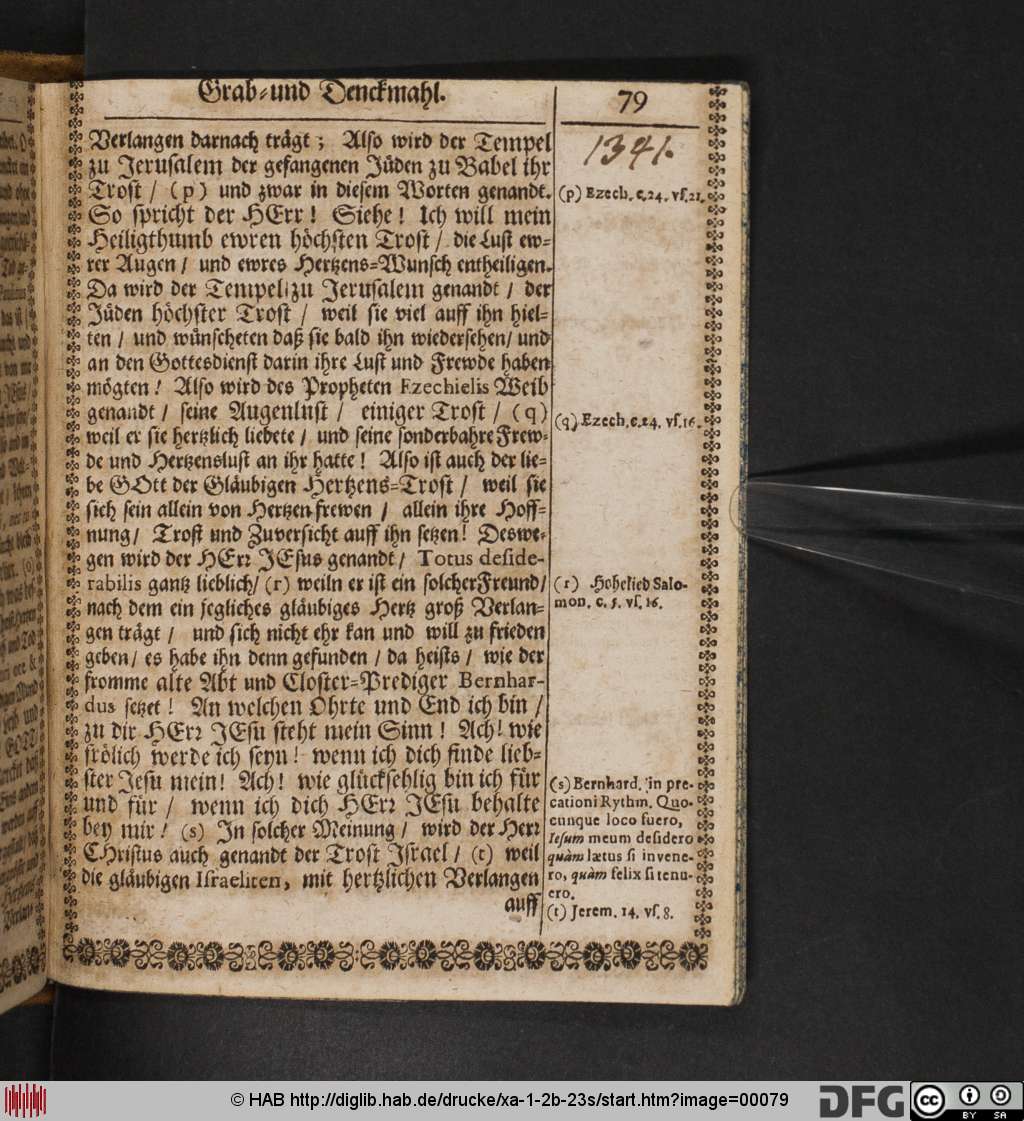 Grab-und Denckmahl.
79
1341.
Verlangen darnach trägt; Also wird der Tempel
zu Jerusalem der gefangenen Jüden zu Babel ihr
Trost / (p) und zwar in diesem Worten genandt.
So spricht der HErr! Siehe! Ich will mein
Heiligthumb ewren höchsten Trost / die Lust ew-
rer Augen / und ewres Hertzens-Wunsch entheiligen.
Da wird der Tempel zu Jerusalem genandt / der
Jüden höchster Trost / weil sie viel auff ihn hiel-
ten / und wünscheten daß sie bald ihn wiedersehen / und
an den Gottesdienst darin ihre Lust und Frewde haben
mögten! Also wird des Propheten Ezechielis Weib
genandt / seine Augenlust / einiger Trost / (q)
weil er sie hertzlich liebete / und seine sonderbahre Frew-
de und Hertzenslust an ihr hatte! Also ist auch der lie-
be GOtt der Gläubigen Hertzens-Trost / weil sie
sich sein allein von Hertzen frewen / allein ihre Hoff-
nung / Trost und Zuversicht auff ihn setzen! Deswe-
gen wird der HErr JEsus genandt / Totus deside-
rabilis gantz lieblich / (r) weiln er ist ein solcher Freund /
nach dem ein jegliches gläubiges Hertz groß Verlan-
gen trägt / und sich nicht ehr kan und will zu frieden
geben / es habe ihn denn gefunden / da heists / wie der
fromme alte Abt und Closter-Prediger Bernhar-
dus setzet! An welchen Ohrte und End ich bin /
zu dir HErr JEsu steht mein Sinn! Ach! wie
frölich werde ich seyn! wenn ich dich finde lieb-
ster Jesu mein! Ach! wie glücksehlig bin ich für
und für / wenn ich dich HErr JEsu behalte
bey mir! (s) In solcher Meinung / wird der Herr
CHristus auch genandt der Trost Israel / (t) weil
die gläubigen Israeliten, mit hertzlichen Verlangen
auff
(p) Ezech. c. 24. vs. 21.
(q) Ezech. c. 24. vs. 16.
(r) Hohelied Salo-
mon. c. 5. vs. 16.
(s) Bernhard. in pre-
cationi Rythm. Quo-
cunque loco fuero,
Iesum meum desidero
quàm lætus si invene-
ro, quàm felix si tenu-
ero.
(t) Jerem. 14. vs. 8.
© HAB http://diglib.hab.de/drucke/xa-1-2b-23s/start.htm?image=00079
DFG
cc BY SA